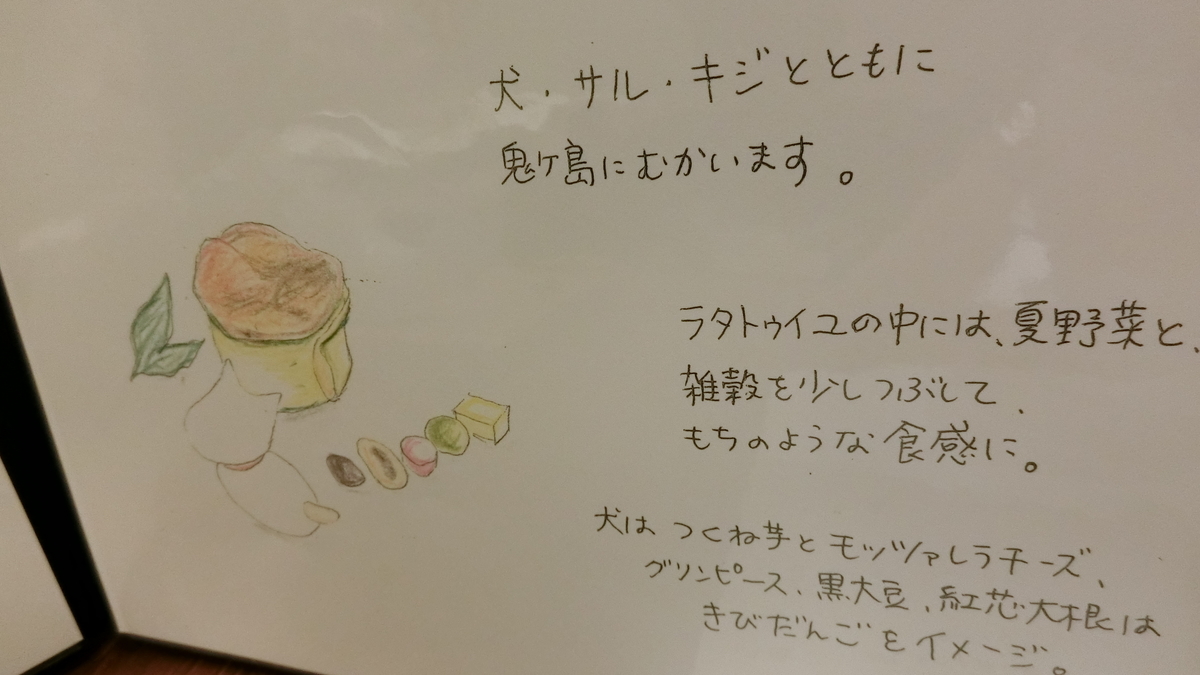 犬・サル・キジとともに
鬼ヶ島にむかいます。
ラタトゥイユの中には、夏野菜と、
雑穀を少しつぶして、
もちのような食感に。
犬は つくね芋とモッツァレラチーズ、
グリンピース、黒大豆、紅芯大根は
きびだんごをイメージ。